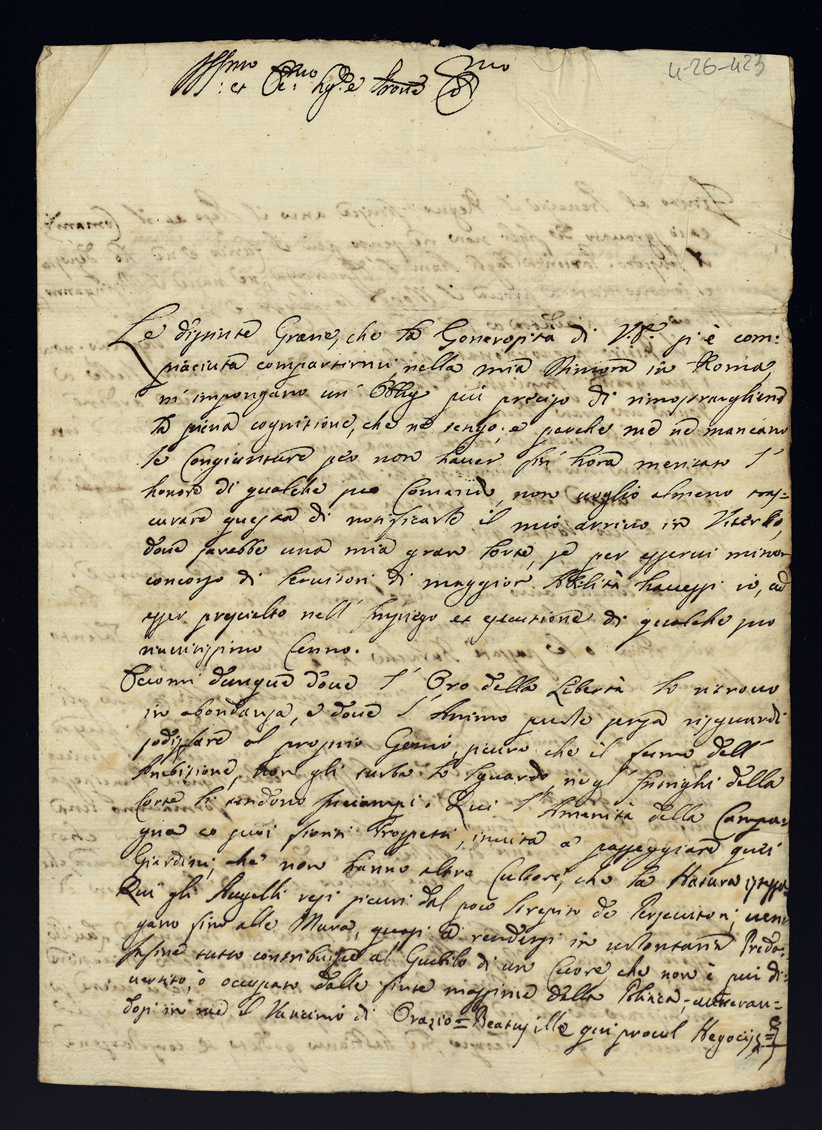 4-26-423
Illmo et Ecc.mo Sig.re Prone Col.mo
Le distinte Grazie, che la Generosità di V.E. si è com:
piaciuta compartirmi nella mia Dimora in Roma,
m'impongano un' Obligo più preciso di rimostrargliene
la piena cognitione, che ne tengo: e perche me ne mancano
le Congiunture per non haver fin' hora meritato l'
honore di qualche suo Comando, non voglio almeno tras:
curare questa di notificarle il mio arrivo in Viterbo,
dove sarebbe una mia gran sorte, se per esservi minor
concorso di Servitori di maggior Abilità havessi io, ad
esser prescielto nell' Impiego et esecutione di qualche suo
riveritissimo Cenno.
Eccomi dunque dove l' Oro della Libertà lo ritrovo
in abondanza, e dove l' Animo puole senza risguardi
sodisfare al proprio Genio, sicuro che il fumo dell'
Ambizione, non gli turba lo sguardo ne gl' Intrighi della
Corte li rendono inciampi. Qui l' Amenità della Campa:
gna co suoi fioriti Prospetti, invita a passeggiare quei
Giardini, che non hanno altro Cultore, che la Natura istessa
Qui gli Augelli resi sicuri dal poco strepito de Persecutori, ven:
gano fino alle Mura, quasi a rendersi in volontaria Preda:
Infine tutto contribuisce al Giubilo di un Cuore che non è più di:
vertito, ò occupato dalle finte massime della Politica, avveran:
dosi in me il Vaticinio di Orazio = Beatus ille qui procul Negocijs =